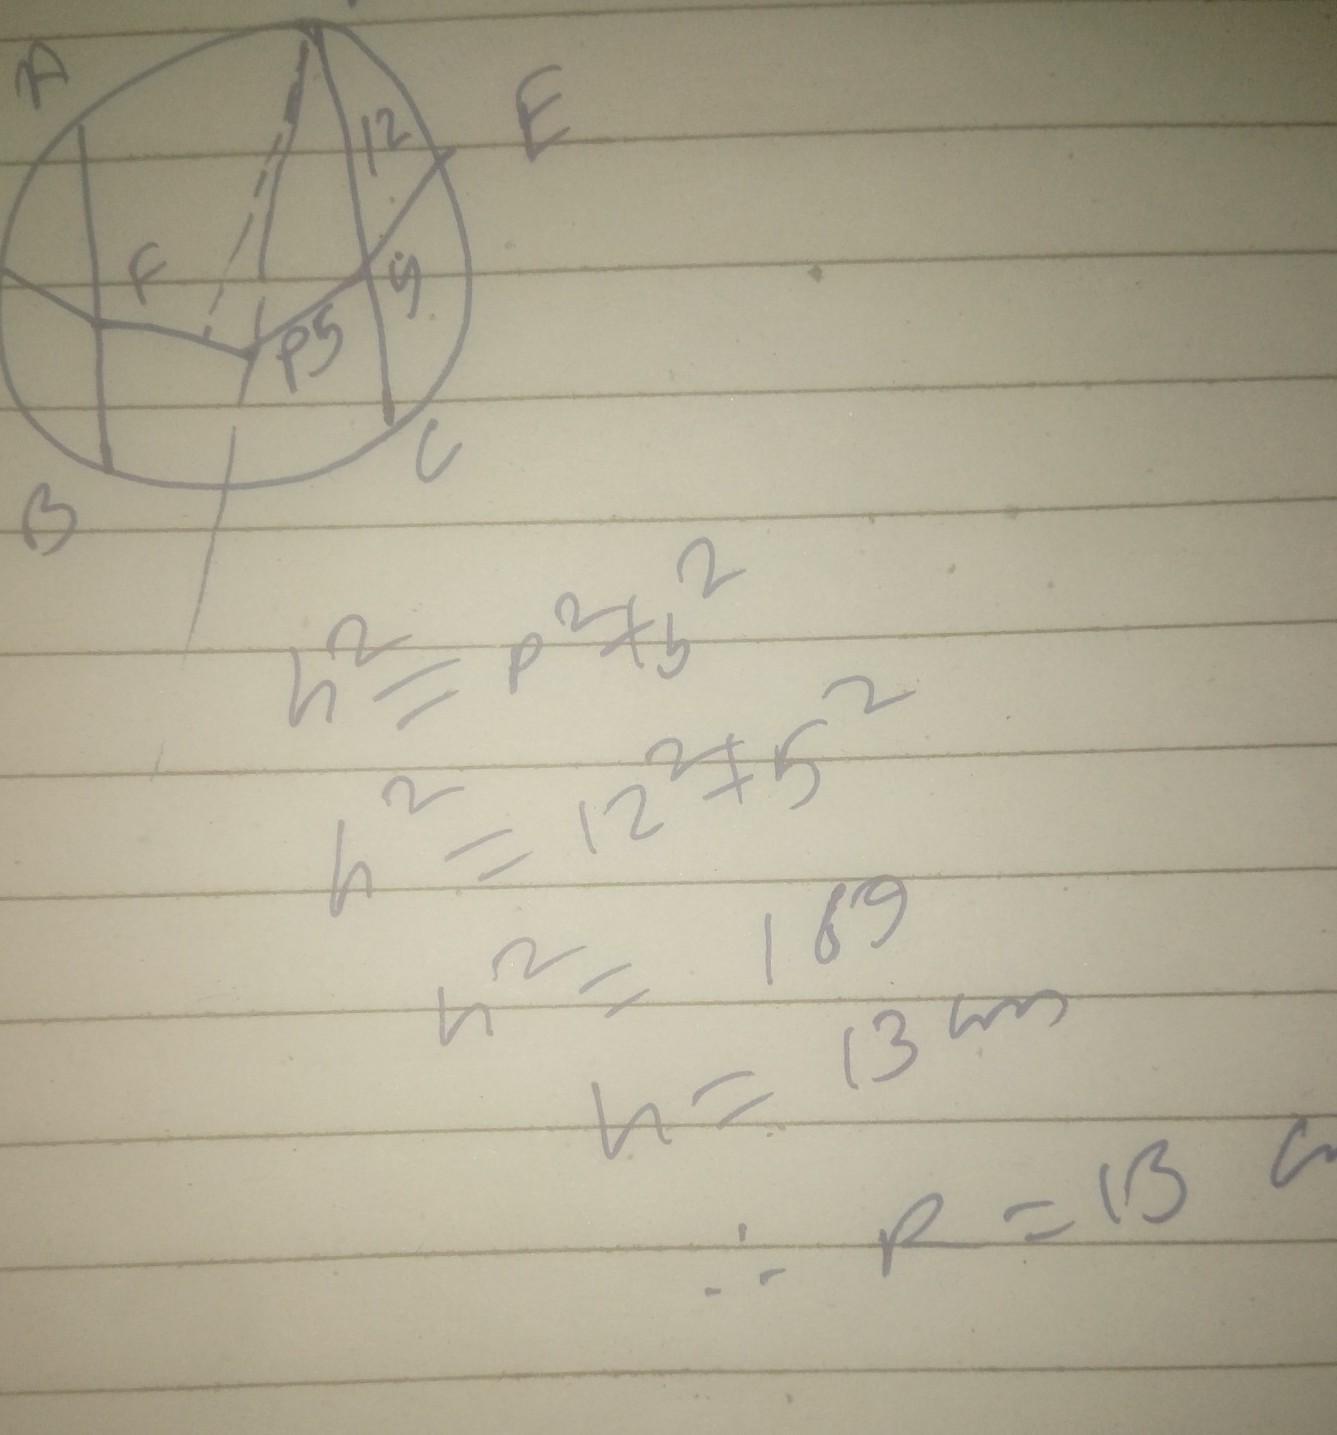 A
E
12
F
9
P5
C
B
h² = p² + b²
h² = 12² + 5²
h² = 169
h = 13 cm
∴ R = 13 c